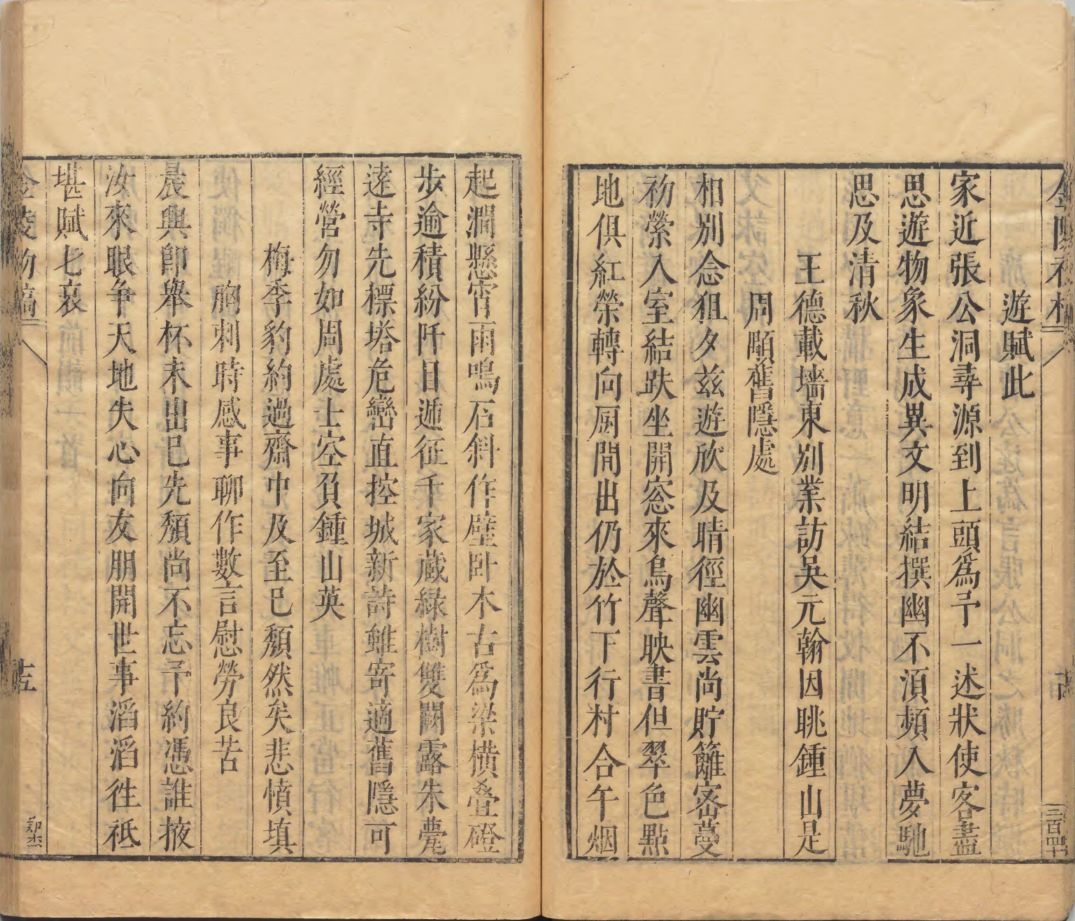 遊賦此
家近張公洞尋源到上頭爲予一述狀使客盡
思遊物象生成異文明結撰幽不須頻入夢馳
思及清秋
王德載墻東别業訪吴元翰因眺鍾山是
周顒舊隱處
相别念徂夕兹遊欣及晴徑幽雲尚貯籬宻蔓
初縈入室結趺坐開窓來鳥聲映書但翠色點
地俱紅榮轉向厨間出仍於竹下行村合午烟
起澗懸宵雨鳴石斜作壁卧木古爲梁横叠磴
步逾積紛阡日遞征千家藏緑樹雙闕露朱甍
逹寺先標塔危巒直控城新詩雖寄適舊隱可
經營勿如周處士空負鍾山英
梅季豹約過齋中及至已頽然矣悲憤填
胸刺時感事聊作數言慰勞良苦
晨興卽舉杯未出已先頽尚不忘予約憑誰掖
汝來眼争天地失心向友朋開世事滔滔徃祗
堪賦七哀
金陵初稿
十五